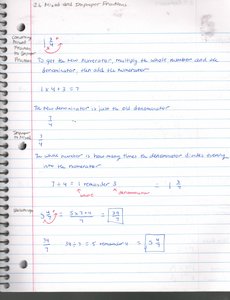 2.6 Mixed and Improper Fractions
Converting Mixed Fractions to Improper Fractions
1 3/4
To get the new numerator, multiply the whole number and the
denominator, then add the numerator
1 x 4 + 3 = 7
The new denominator is just the old denominator
7/4
Improper to Mixed
7/4
The whole number is how many times the denominator divides evenly
into the numerator
7 ÷ 4 = 1 remainder 3 = 1 3/4
= 5x7+4/7 = 39/7
39/7 39÷7 = 5 remainder 4 = 5 4/7